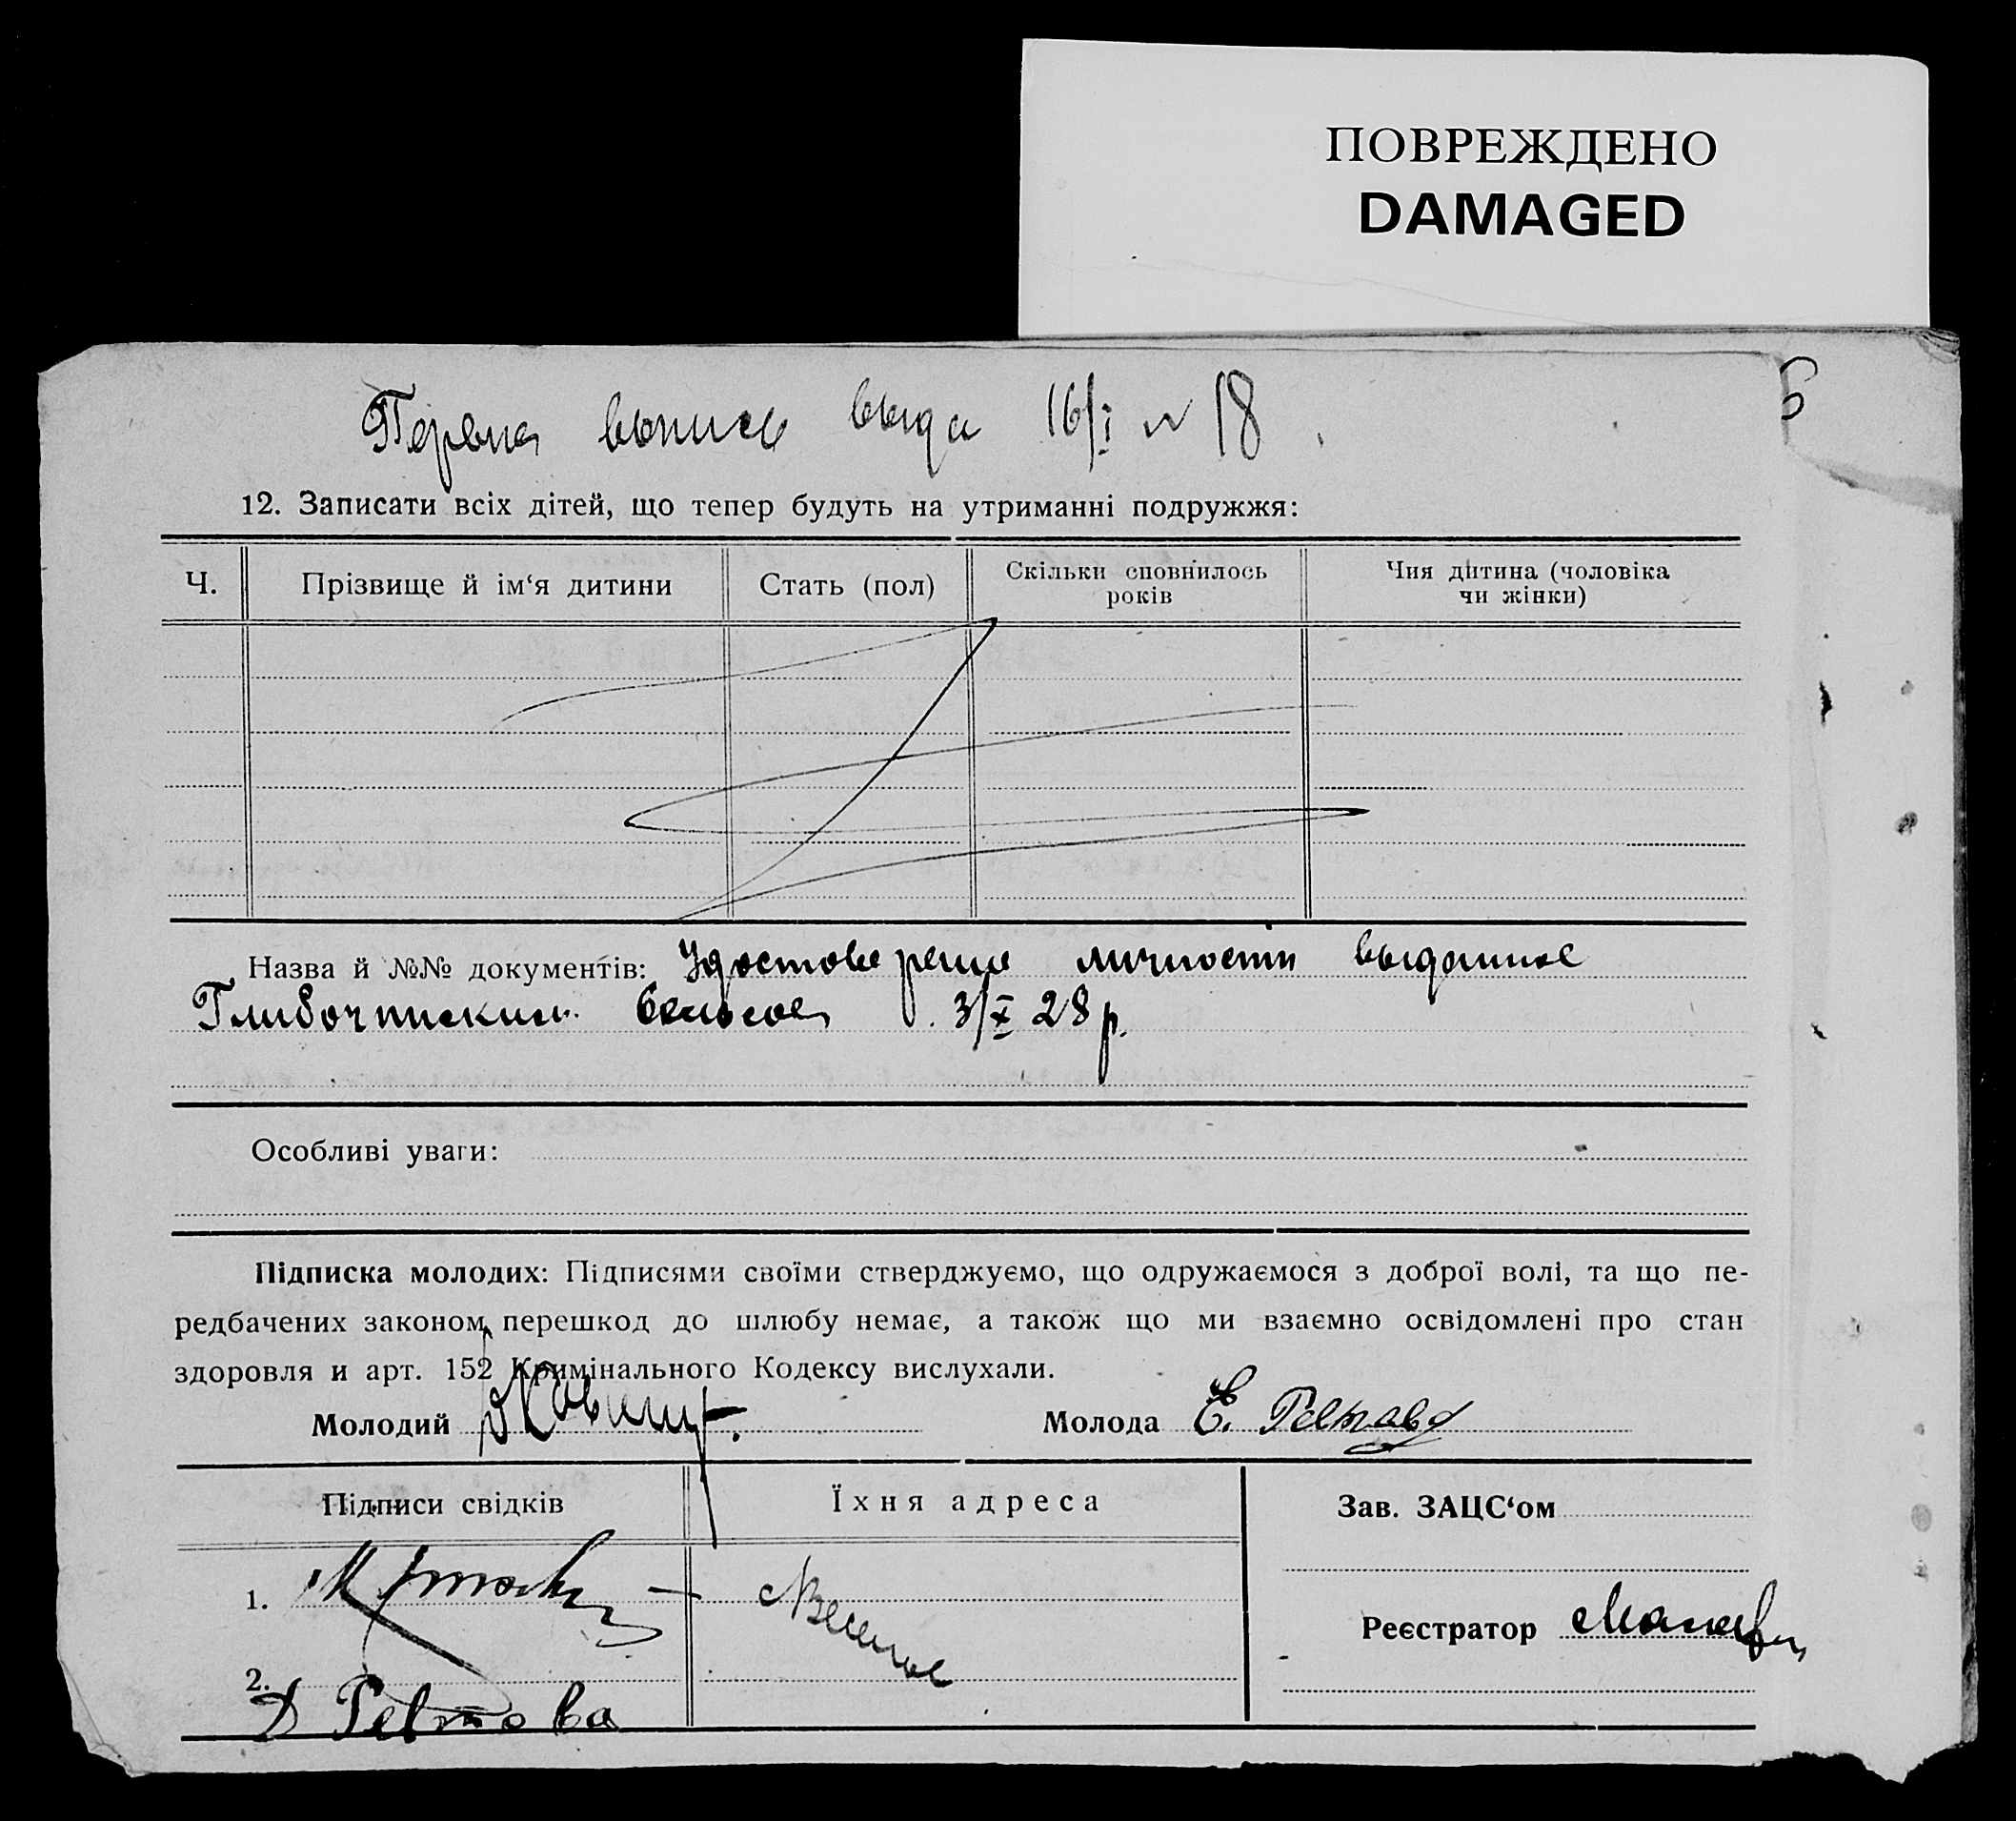 ПОВРЕЖДЕНО
DAMAGED
выда 16/I № 18
12. Записати всіх дітей, що тепер будуть на утриманні подружжя:
Ч. Прізвище й ім‘я дитини Стать (пол) Скільки сповнилось років Чия дитина (чоловіка чи жінки)
Назва й №№ документів: Удостоверение личности выданное
3/X 28 р.
Особливі уваги:
Підписка молодих: Підписями своїми стверджуємо, що одружаємося з доброї волі, та що пе-
редбачених законом перешкод до шлюбу немає, а також що ми взаємно освідомлені про стан
здоровля и арт. 152 Кримінального Кодексу вислухали.
Молодий Молода Е.
Підписи свідків Їхня адреса Зав. ЗАЦС‘ом
1.
Реєстратор
2.
Д Ревтова